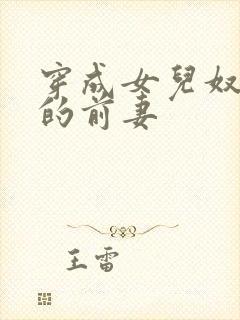 穿成女兒奴
的前妻
王雷